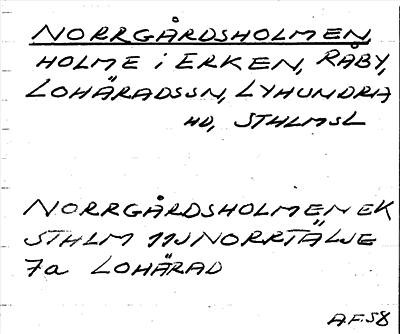 NORRGÅRDSHOLMEN,
HOLME i ERKEN, RÅBY,
LOHÄRADSSN, LYHUNDRA
HD, STHLMSL
NORRGÅRDSHOLMEN EK
STHLM 11J NORRTÄLJE
7a LOHÄRAD
A.F.58